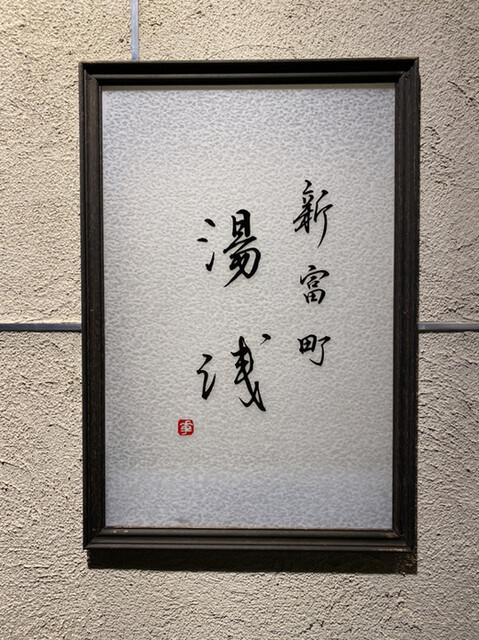 新富町
湯浅